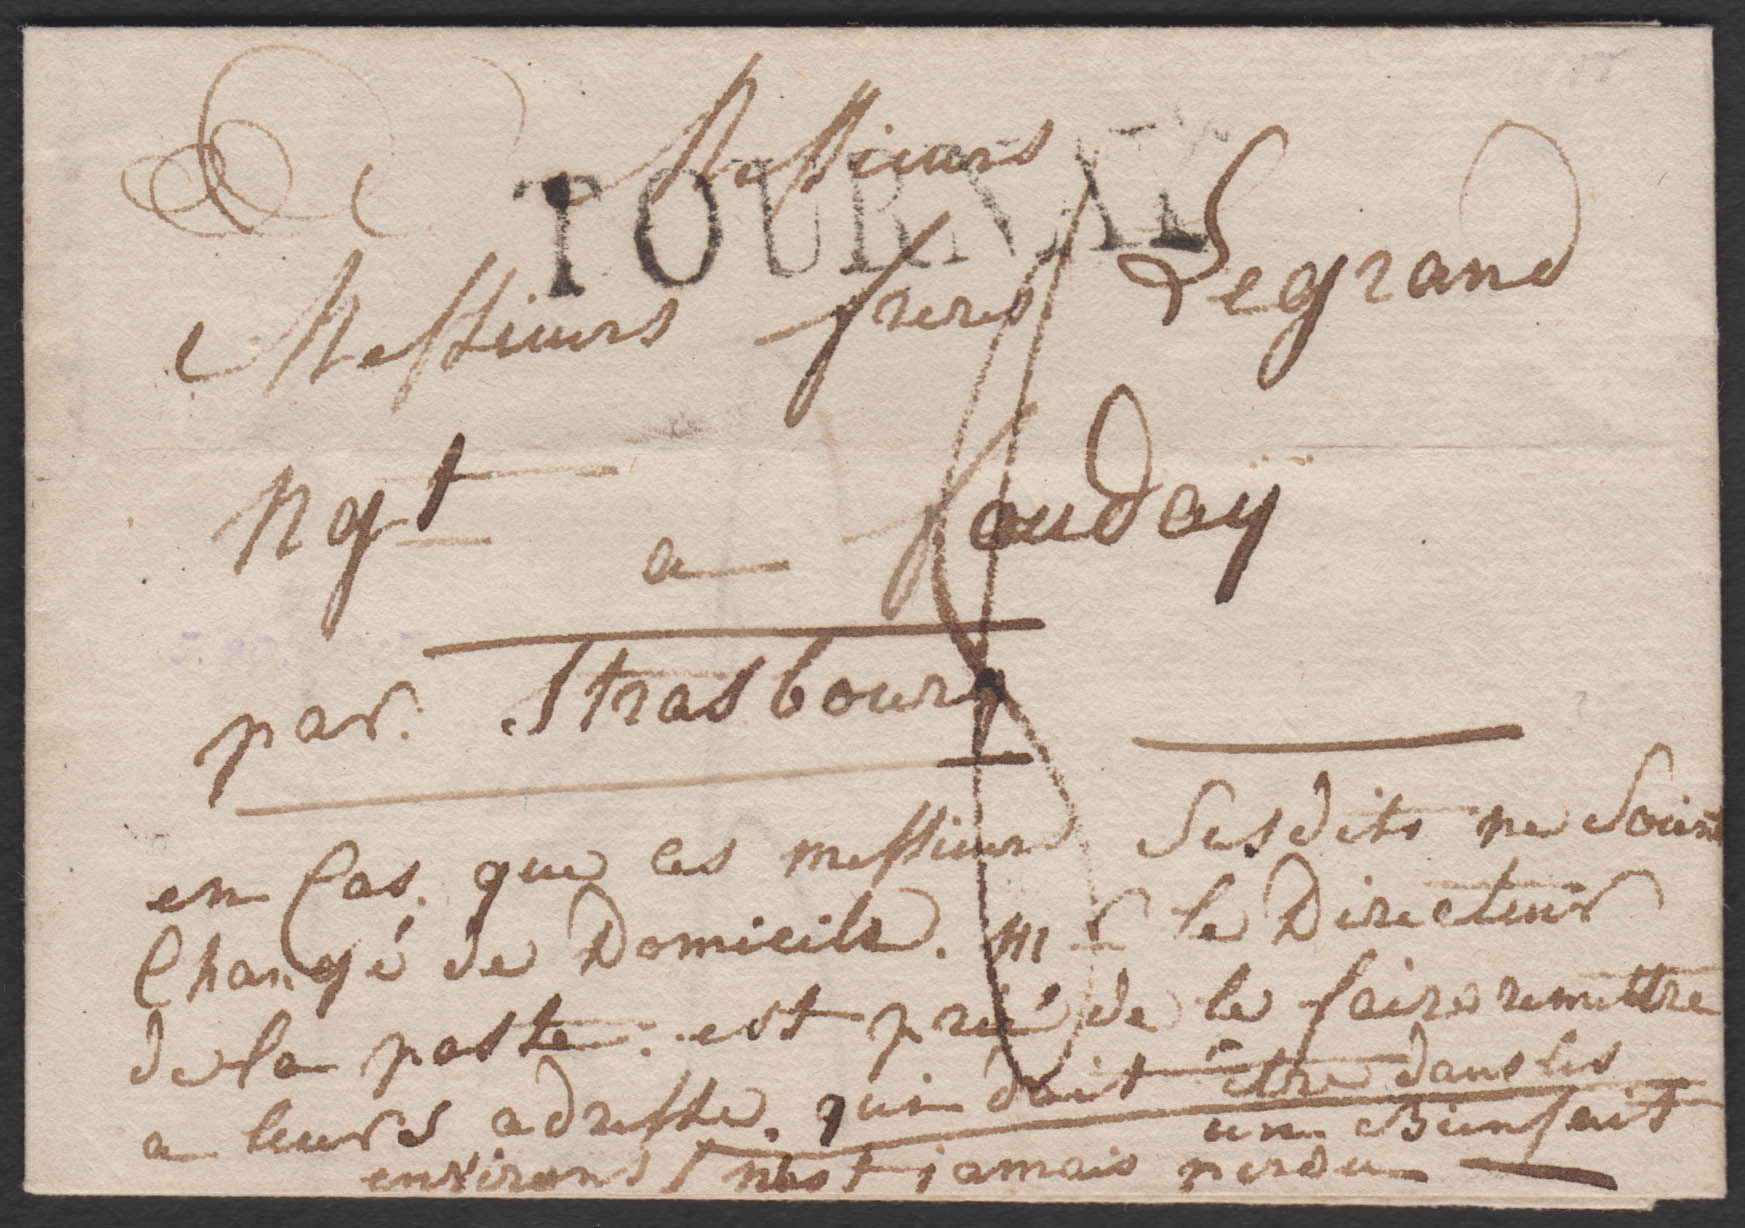 Messieurs
TOURNAY
Messieurs freres Legrand
Ngt a foudaÿ
par Strasbourg
en Cas. que ces messieurs Susdits ne Soient
Changé de Domicile. Mr le Directeur
de la poste est prié de le faire remettre
a leurs adresse. qui doit être dans les
environs / un Bienfait
n'est jamais perdu